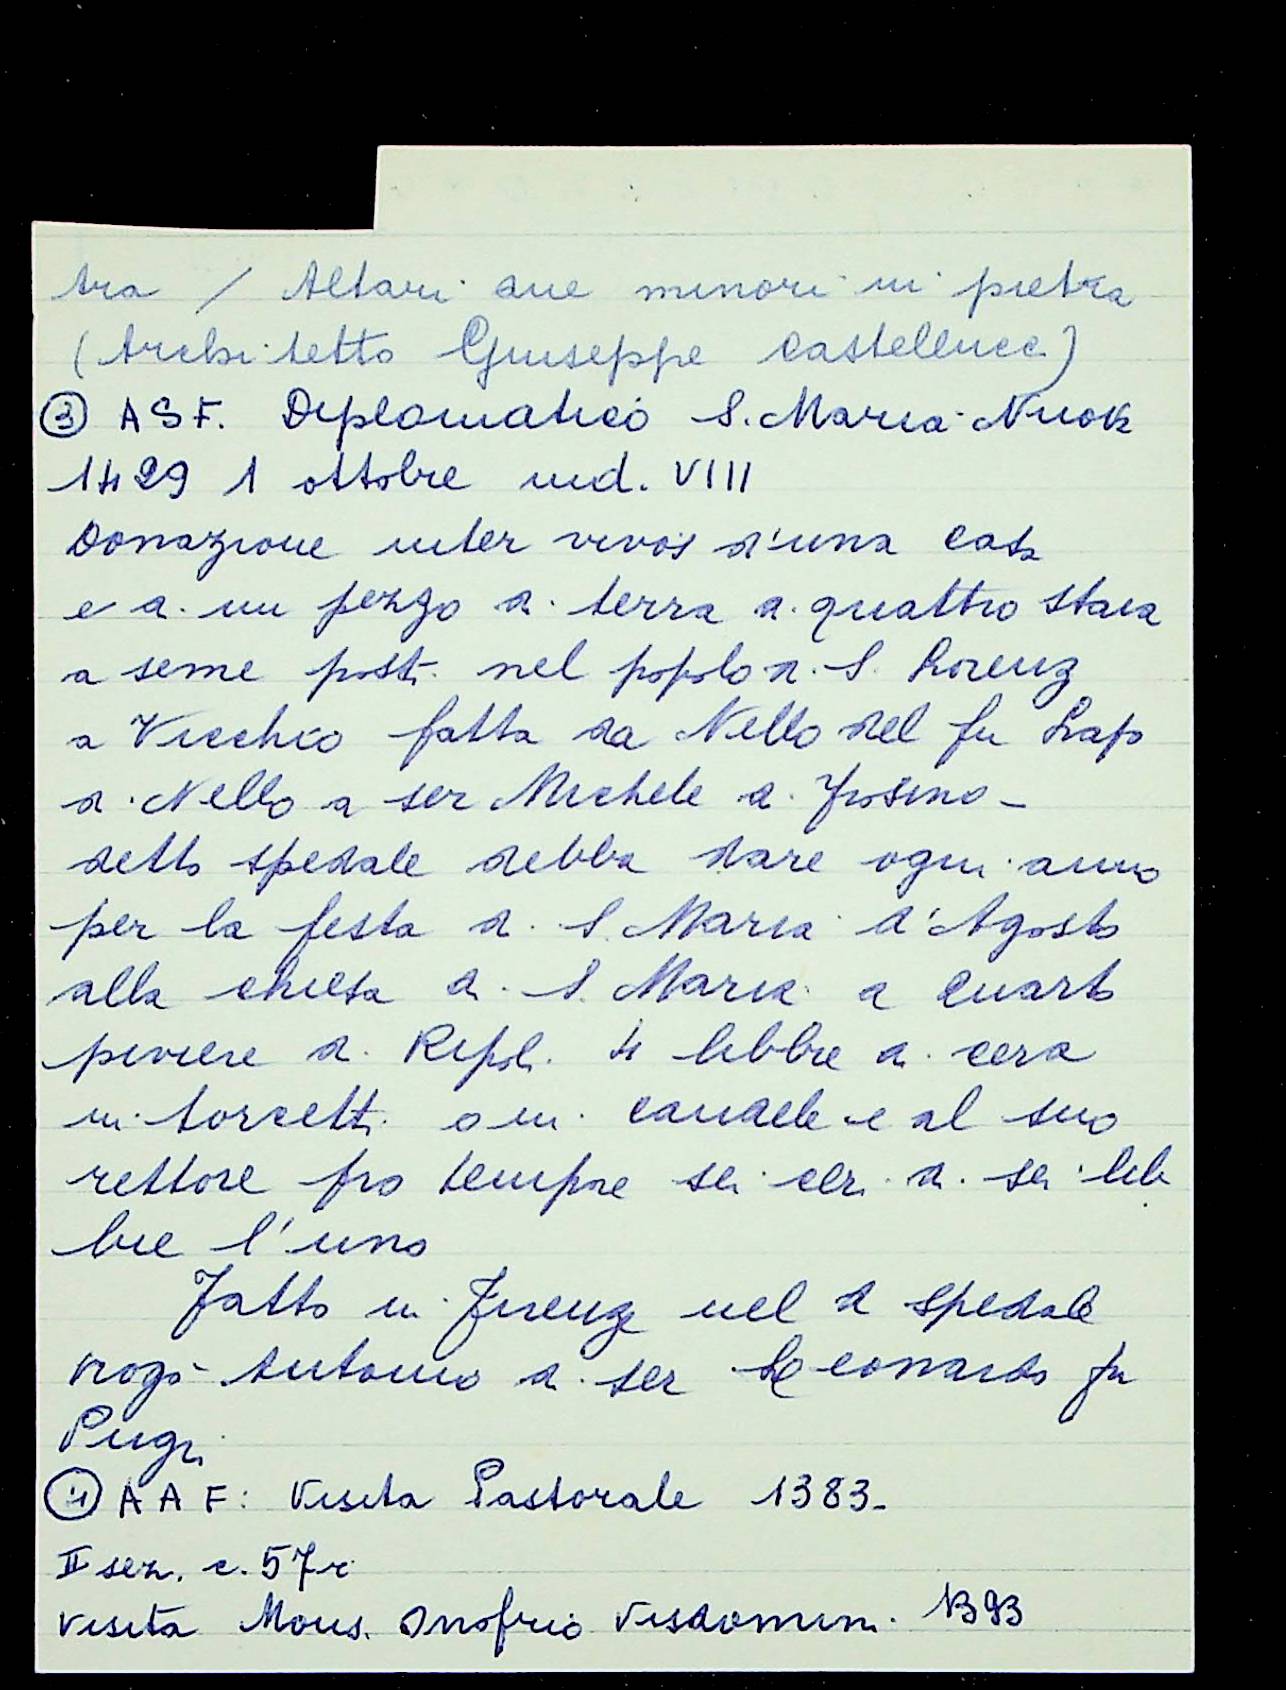 tra / Altari due minori in pietra
(Architetto Giuseppe Castellucci)
③ ASF. Diplomatico S. Maria Nuova
1429 1 ottobre ind. VIII
Donazione inter vivos d'una casa
e di un pezzo di terra di quattro staia
a seme posti nel popolo di S. Lorenzo
a Vicchio fatta da Nello del fu Lapo
di Nello a ser Michele di Frosino -
detto spedale debba dare ogni anno
per la festa di S. Maria d'Agosto
alla chiesa di S. Maria a Quarto
piviere di Ripoli 4 libbre di cera
in torcetti o in candele e al suo
rettore pro tempore sei ceri di sei lib
bre l'uno
Fatto in Firenze nel d spedale
rogò Antonio di ser Leonardo fu
Pugi
④ AAF: Visita Pastorale 1383-
II sez. c. 57r
Visita Mons. Onofrio Visdomini 1393